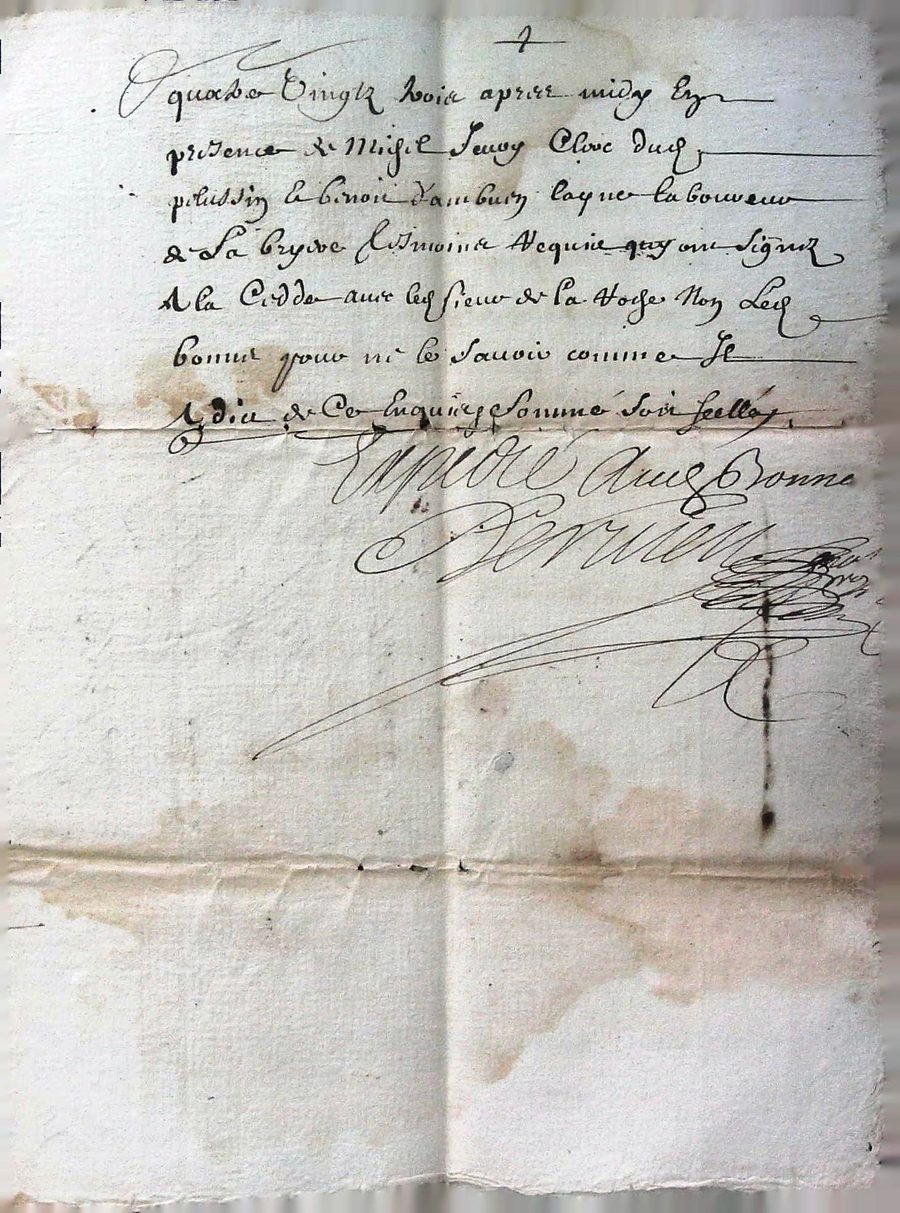 quatre vingtz trois apres midy En
presence de Michel Jenoy Clerc dud
pelussin & benoit dambuen layne laboureur
de la bryere tesmoins requis quy ont signez
A la Cedde avec led sieur de la roche Non Led
bonne pour ne le savoir comme Il
A dict de Ce Enquis & sommé soit seellé
Expedié Aud Bonne